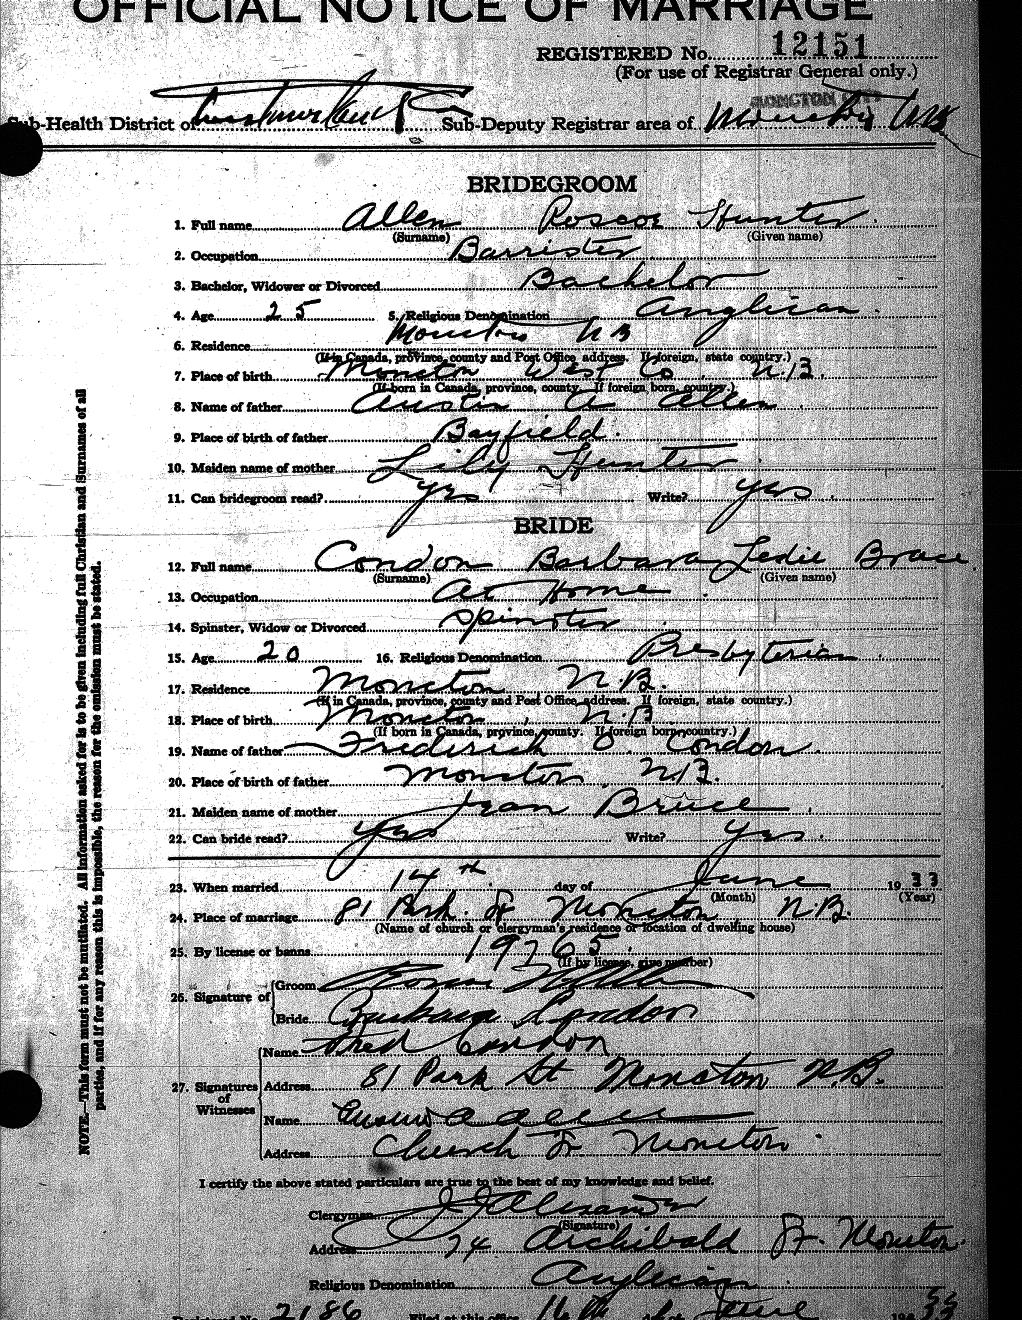 OFFICIAL NOTICE OF MARRIAGE
REGISTERED No. 12151
(For use of Registrar General only.)
MONCTON CITY
Sub-Health District of Sub-Deputy Registrar area of Moncton NB
BRIDEGROOM
1. Full name Allen Roscoe Hunter
(Surname) (Given name)
2. Occupation Barrister
3. Bachelor, Widower or Divorced Bachelor
4. Age 25 5. Religious Denomination Anglican
6. Residence Moncton NB
(If in Canada, province, county and Post Office address. If foreign, state country.)
7. Place of birth Moncton West Co. N.B.
(If born in Canada, province, county. If foreign born, country.)
8. Name of father Austin A Allen
9. Place of birth of father Bayfield.
10. Maiden name of mother Lily Hunter
11. Can bridegroom read? yes Write? yes.
BRIDE
12. Full name Condon Barbara Leslie Bruce
(Surname) (Given name)
13. Occupation At Home.
14. Spinster, Widow or Divorced Spinster
15. Age 20 16. Religious Denomination Presbyterian.
17. Residence Moncton N.B.
(If in Canada, province, county and Post Office address. If foreign, state country.)
18. Place of birth Moncton, N.B
(If born in Canada, province, county. If foreign born, country.)
19. Name of father Frederick O. Condon.
20. Place of birth of father Moncton N.B.
21. Maiden name of mother Jean Bruce.
22. Can bride read? Yes Write? Yes.
23. When married 14th day of June 1933
(Month) (Year)
24. Place of marriage 81 Park St Moncton N.B.
(Name of church or clergyman's residence or location of dwelling house)
25. By license or banns 19765.
(If by license, give number)
26. Signature of Groom
Bride Barbara Condon
27. Signatures of Witnesses Name Fred Condon
Address 81 Park St Moncton N.B.
Name Austin A Allen
Address Church St Moncton.
I certify the above stated particulars are true to the best of my knowledge and belief.
Clergyman J J Alexander
(Signature)
Address 74 Archibald St. Moncton.
Religious Denomination Anglican.
Registered No. 2186 Filed at this office 16th day of June 1933
NOTE.—This form must not be mutilated. All information asked for is to be given including full Christian and Surnames of all
parties, and if for any reason this is impossible, the reason for the omission must be stated.